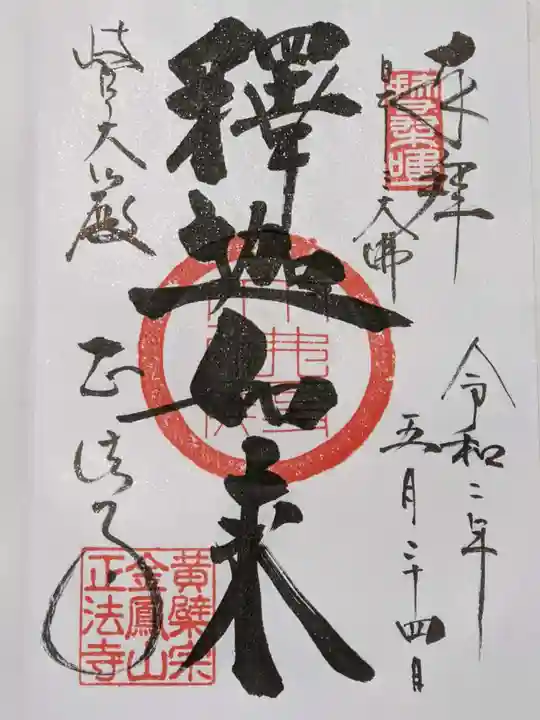 奉拝
日本三大佛
令和二年
五月二十四日
釋迦如来
岐阜大仏殿
正法寺
黄檗宗
金鳳山
正法寺